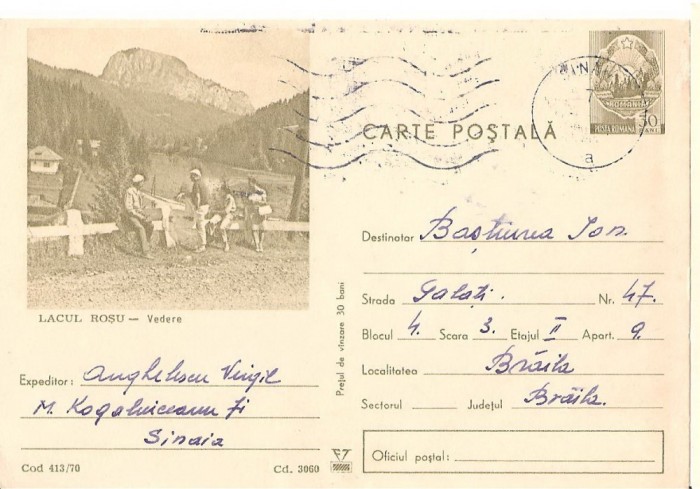 SINAIA
a
POSTA ROMANA
30
BANI
CARTE POȘTALĂ
LACUL ROȘU — Vedere
Expeditor: Anghelescu Virgil
M. Kogalniceanu 71
Sinaia
Cod 413/70
Cd. 3060
Prețul de vînzare 30 bani
Destinatar Baștiurea Ion.
Strada Galați. Nr. 47.
Blocul 4. Scara 3. Etajul II Apart. 9.
Localitatea Brăila
Sectorul Județul Brăila.
Oficiul poștal: